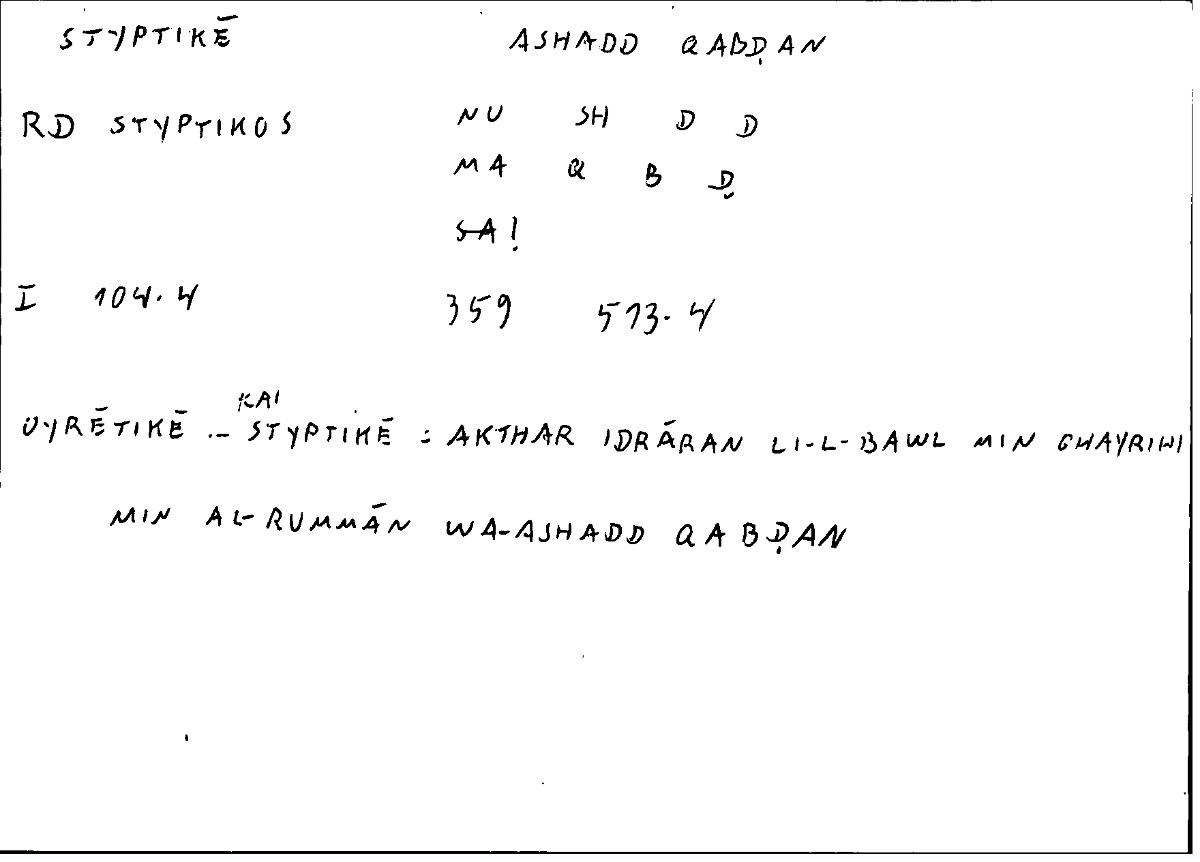 STYPTIKĒ ASHADD QABḌAN
RD STYPTIKOS NU SH D D
MA Q B Ḍ
SA!
I 104.4 359 513.4
OYRĒTIKĒ .. KAI STYPTIKĒ : AKTHAR IDRĀRAN LI-L-BAWL MIN GHAYRIHI
MIN AL-RUMMĀN WA-ASHADD QABḌAN